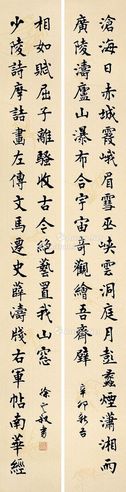 滄海日赤城霞峨眉雪巫峽雲洞庭月彭蠡煙瀟湘雨
廣陵濤廬山瀑布合宇宙奇觀繪吾齋壁
辛卯秋吉
少陵詩摩詰畫左傳文馬遷史薛濤牋右軍帖南華經
相如賦屈子離騷收古今絕藝置我山窓